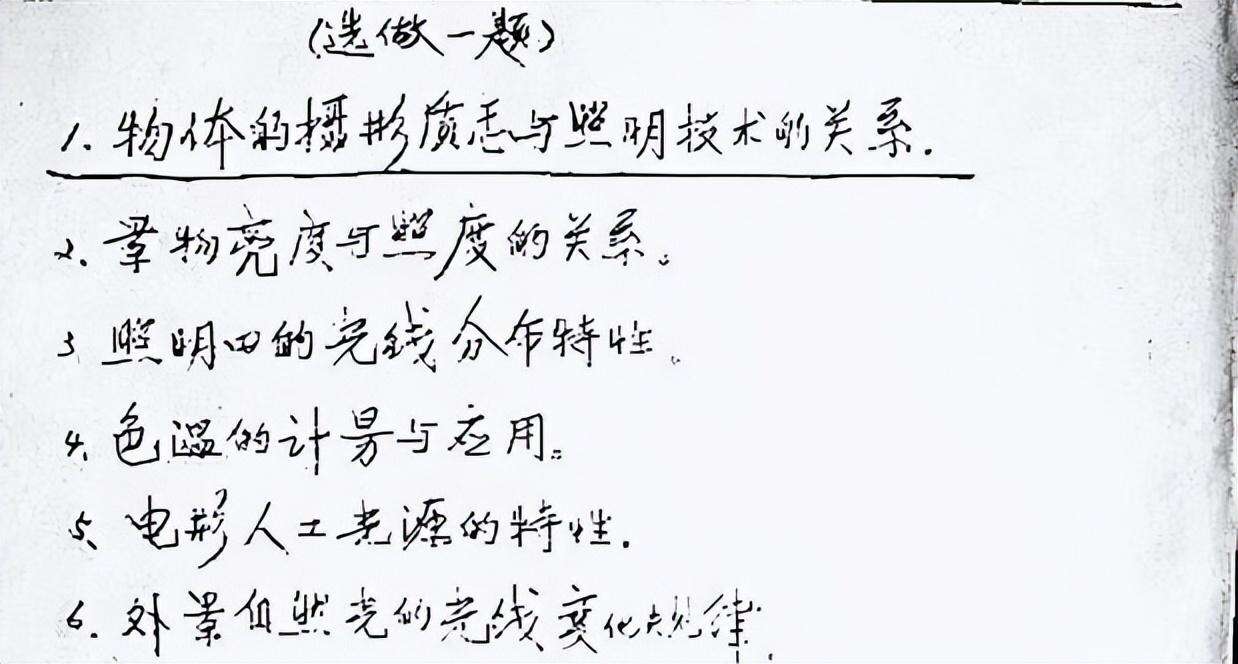 (选做一题)
1. 物体的摄影质态与照明技术的关系.
2. 景物亮度与照度的关系。
3. 照明田的光线分布特性。
4. 色温的计量与应用。
5、电影人工光源的特性.
6. 外景自然光的光线变化规律.